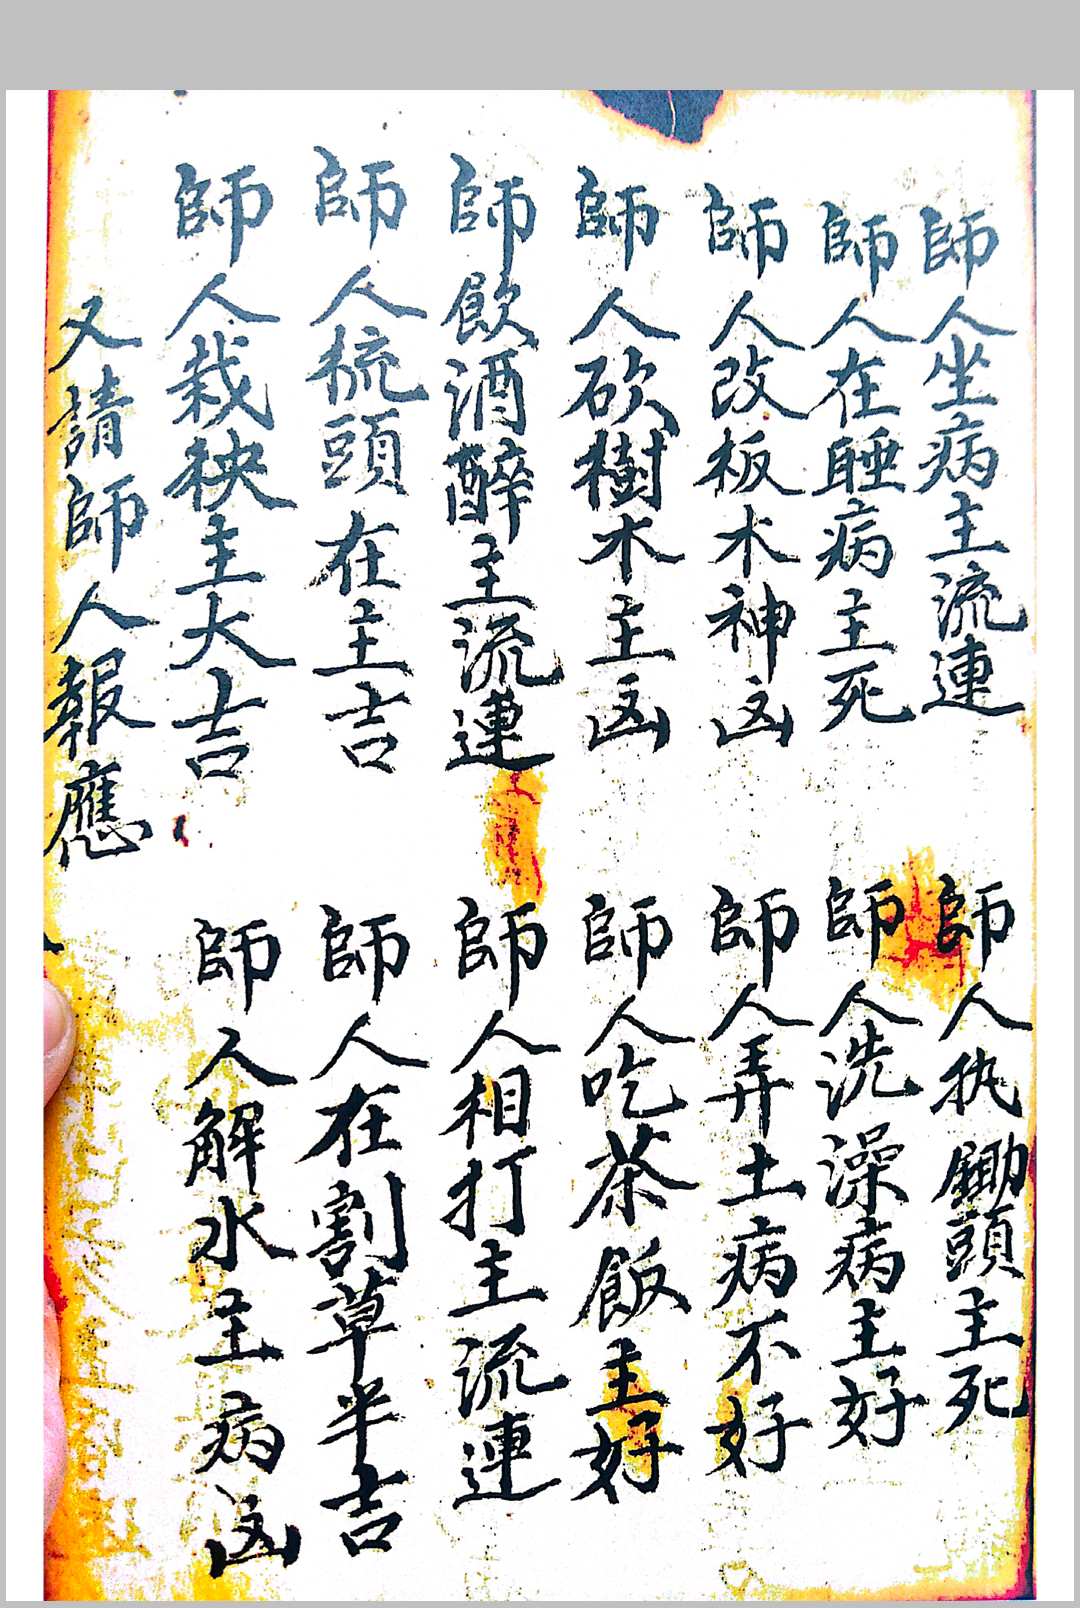 師人坐病主流連
師人执鋤頭主死
師人在睡病主死
師人洗澡病主好
師人改板木神凶
師人弄土病不好
師人砍樹木主凶
師人吃茶飯主好
師飲酒醉主流連
師人相打主流連
師人梳頭在主吉
師人在割草半吉
師人栽秧主大吉
師人解水主病凶
又請師人報應